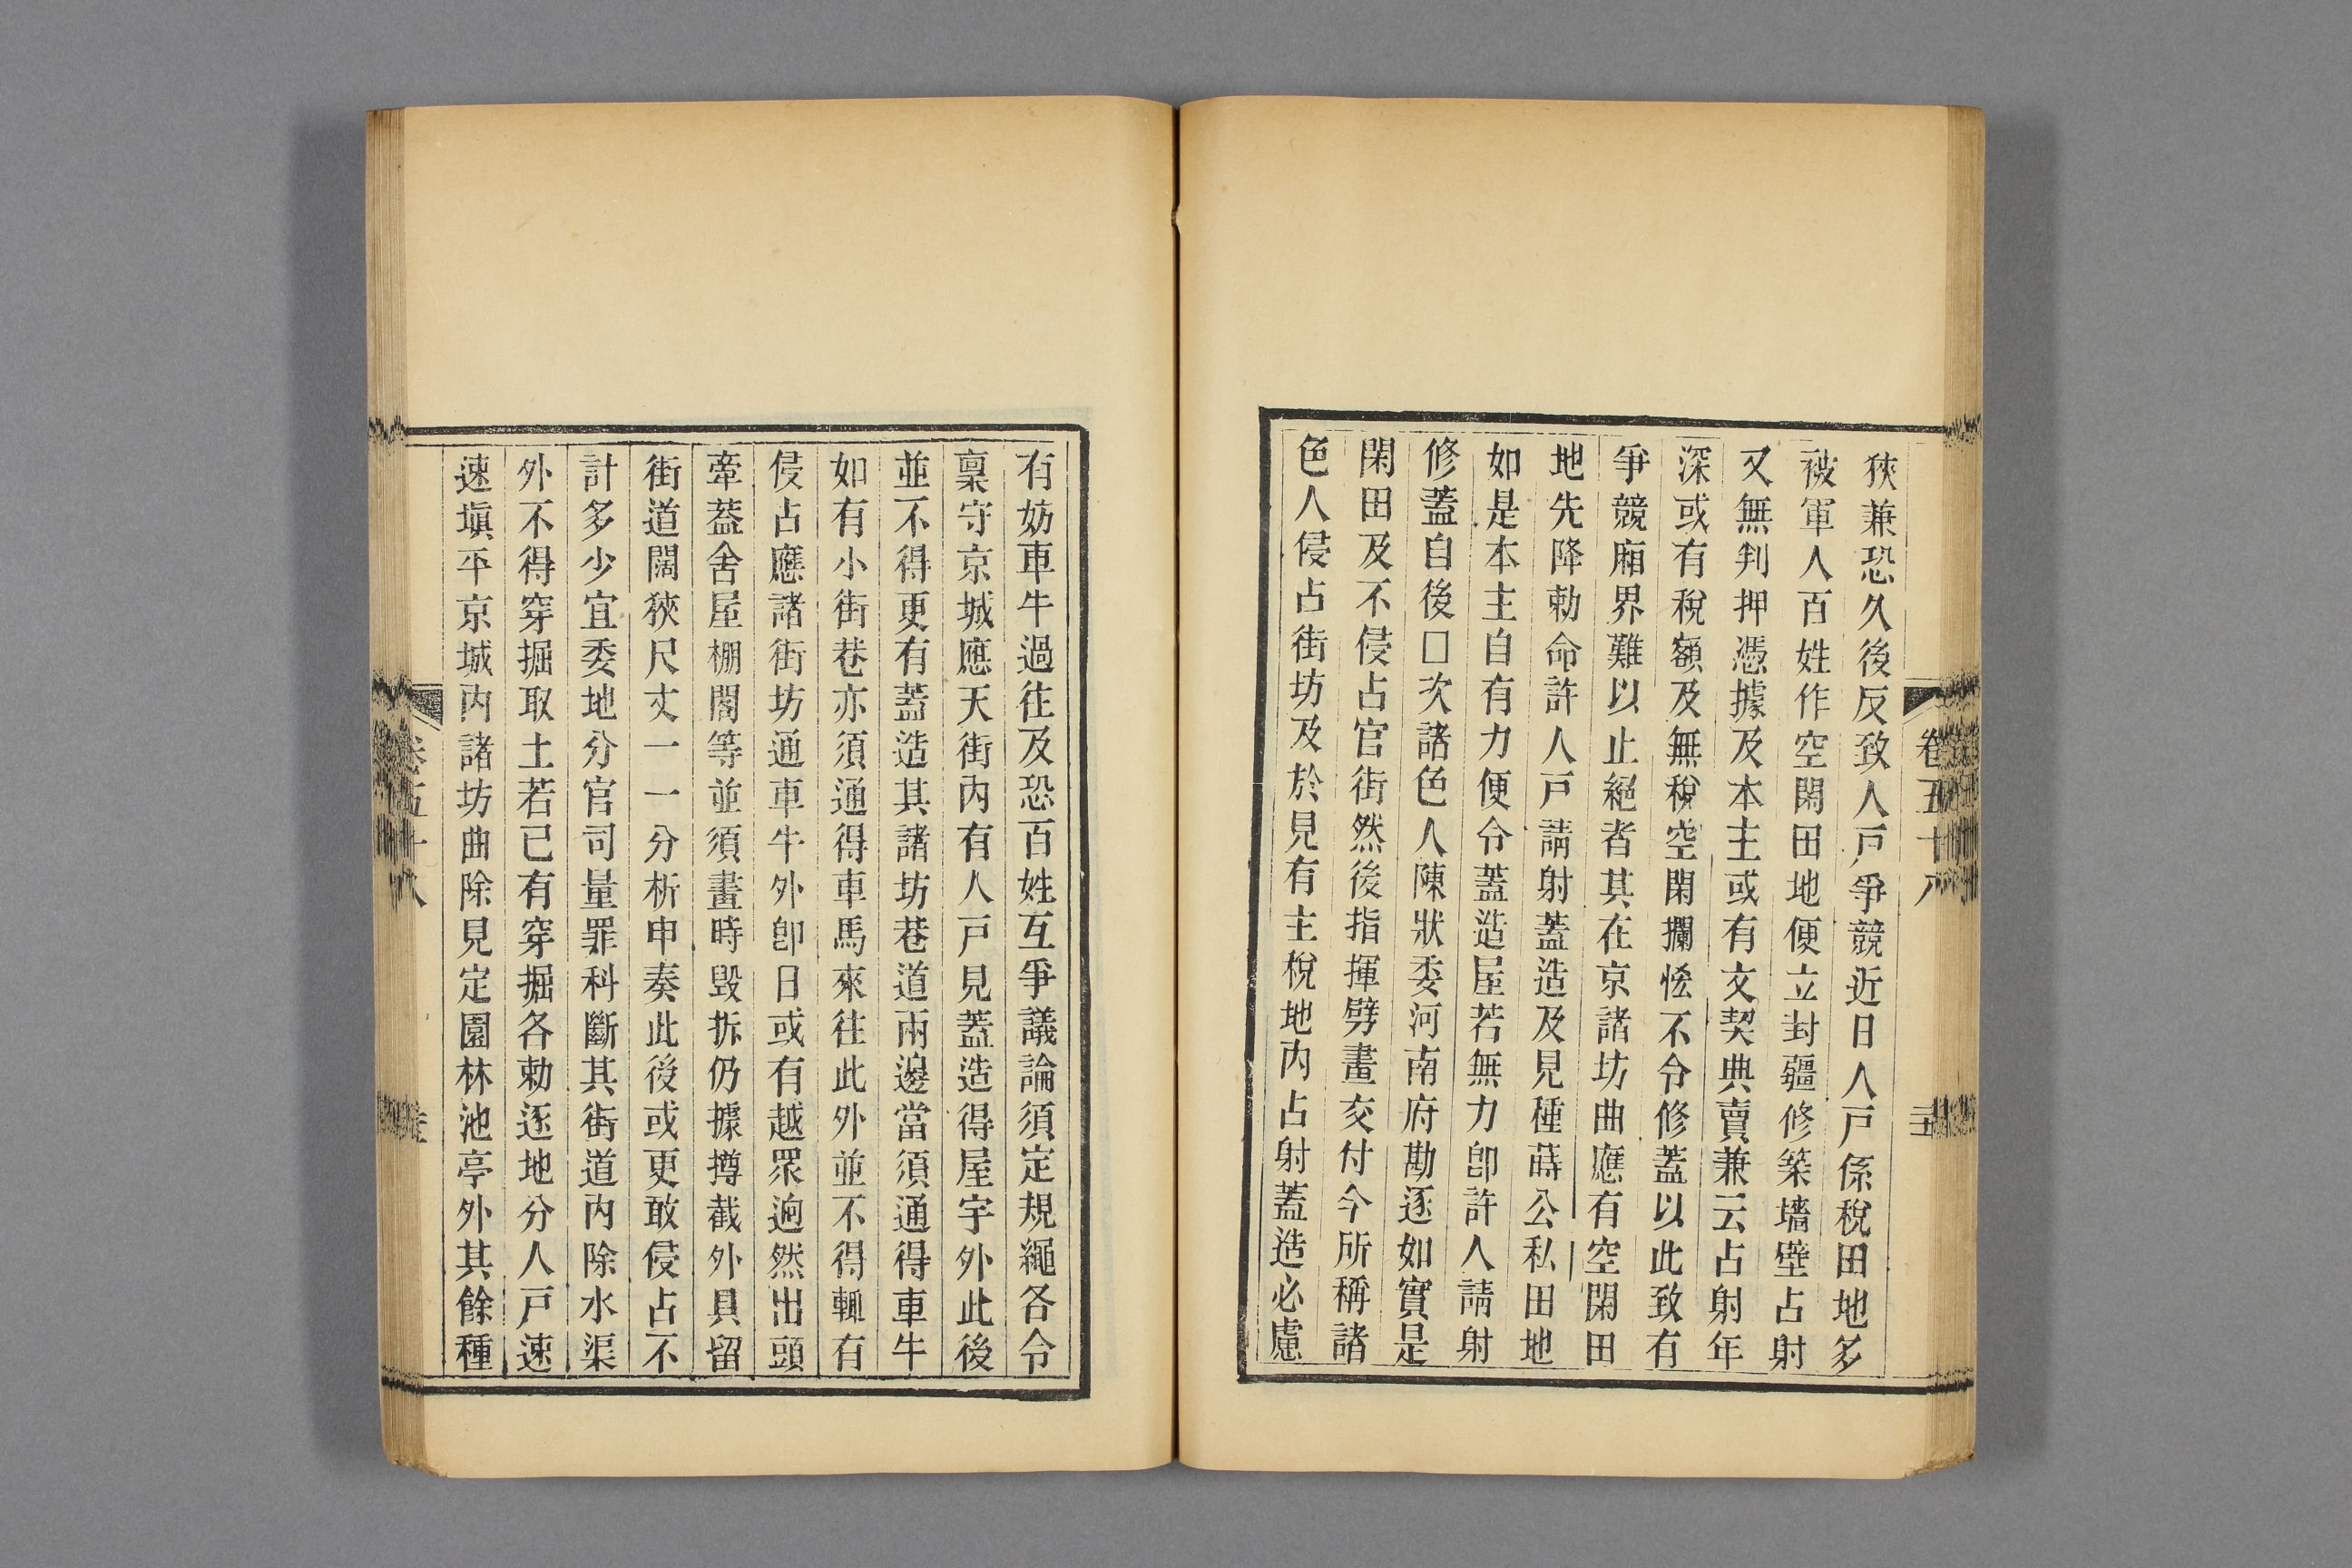 狹兼恐久後反致人戸爭競近日人戸係稅田地多
被軍人百姓作空閑田地便立封疆修築墻壁占射
又無判押憑據及本主或有文契典賣兼云占射年
深或有稅額及無稅空閑攔恡不令修蓋以此致有
爭競廂界難以止絕者其在京諸坊曲應有空閑田
地先降勅命許人戸請射蓋造及見種蒔公私田地
如是本主自有力便令蓋造屋若無力卽許人請射
修蓋自後□次諸色人陳狀委河南府勘逐如實是
閑田及不侵占官街然後指揮劈畫交付今所稱諸
色人侵占街坊及於見有主稅地內占射蓋造必慮
卷五十八
有妨車牛過往及恐百姓互爭議論須定規繩各令
稟守京城應天街內有人戸見蓋造得屋宇外此後
並不得更有蓋造其諸坊巷道兩邊當須通得車牛
如有小街巷亦須通得車馬來往此外並不得輒有
侵占應諸街坊通車牛外卽日或有越眾迥然出頭
牽蓋舍屋棚閣等並須畫時毀拆仍據撙截外具留
街道闊狹尺丈一一分析申奏此後或更敢侵占不
計多少宜委地分官司量罪科斷其街道內除水渠
外不得穿掘取土若已有穿掘各勅逐地分人戸速
速塡平京城內諸坊曲除見定園林池亭外其餘種
卷五十八